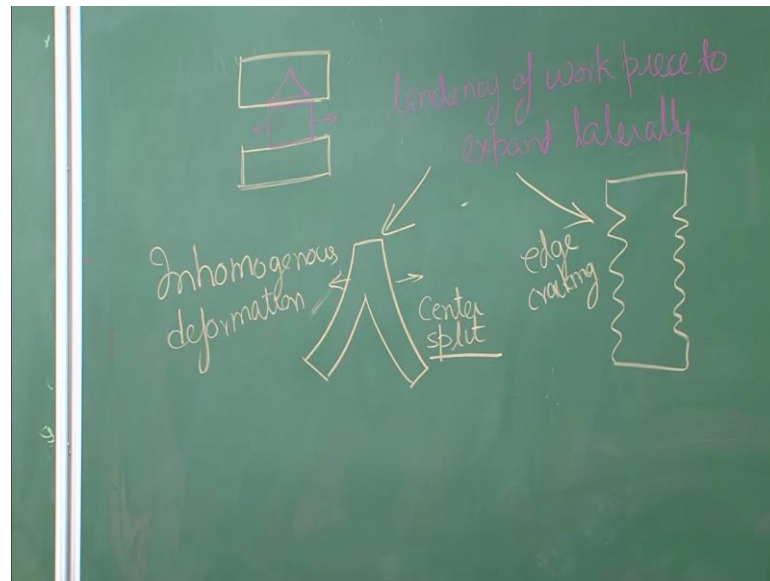 tendency of work piece to
expand laterally
Inhomogenous
deformation
center
split
edge
cracking